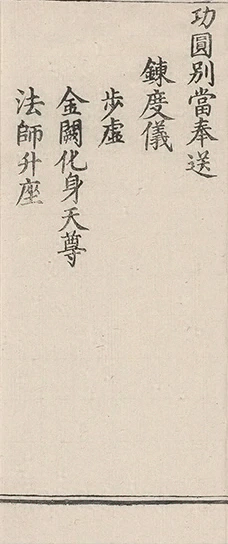 功圓別當奉送
鍊度儀
步虛
金闕化身天尊
法師升座